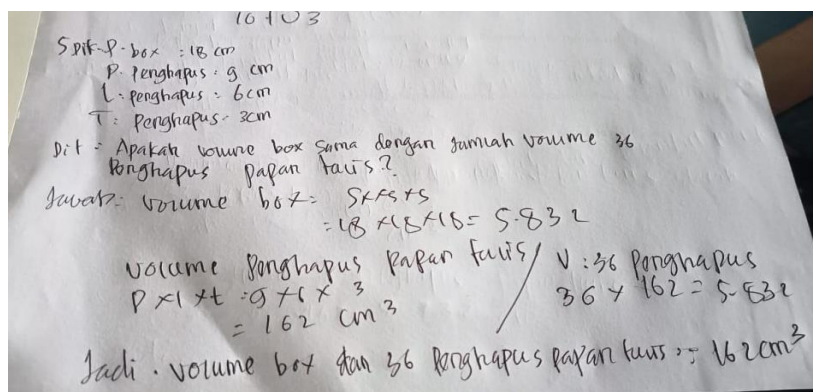 5 Dik-P. box = 18 cm
P. Penghapus = 9 cm
L = penghapus = 6cm
T = Penghapus = 3cm
Dit = Apakah volume box sama dengan jumlah volume 36
Penghapus papan tulis?
Jawab = volume box = S×S×S
= 18 × 18 × 18 = 5.832
Volume Penghapus Papan tulis / V = 36 Penghapus
P × l × t = 9 × 6 × 3
36 × 162 = 5.832
= 162 cm³
Jadi . volume box dan 36 Penghapus papan tulis = 162 cm³